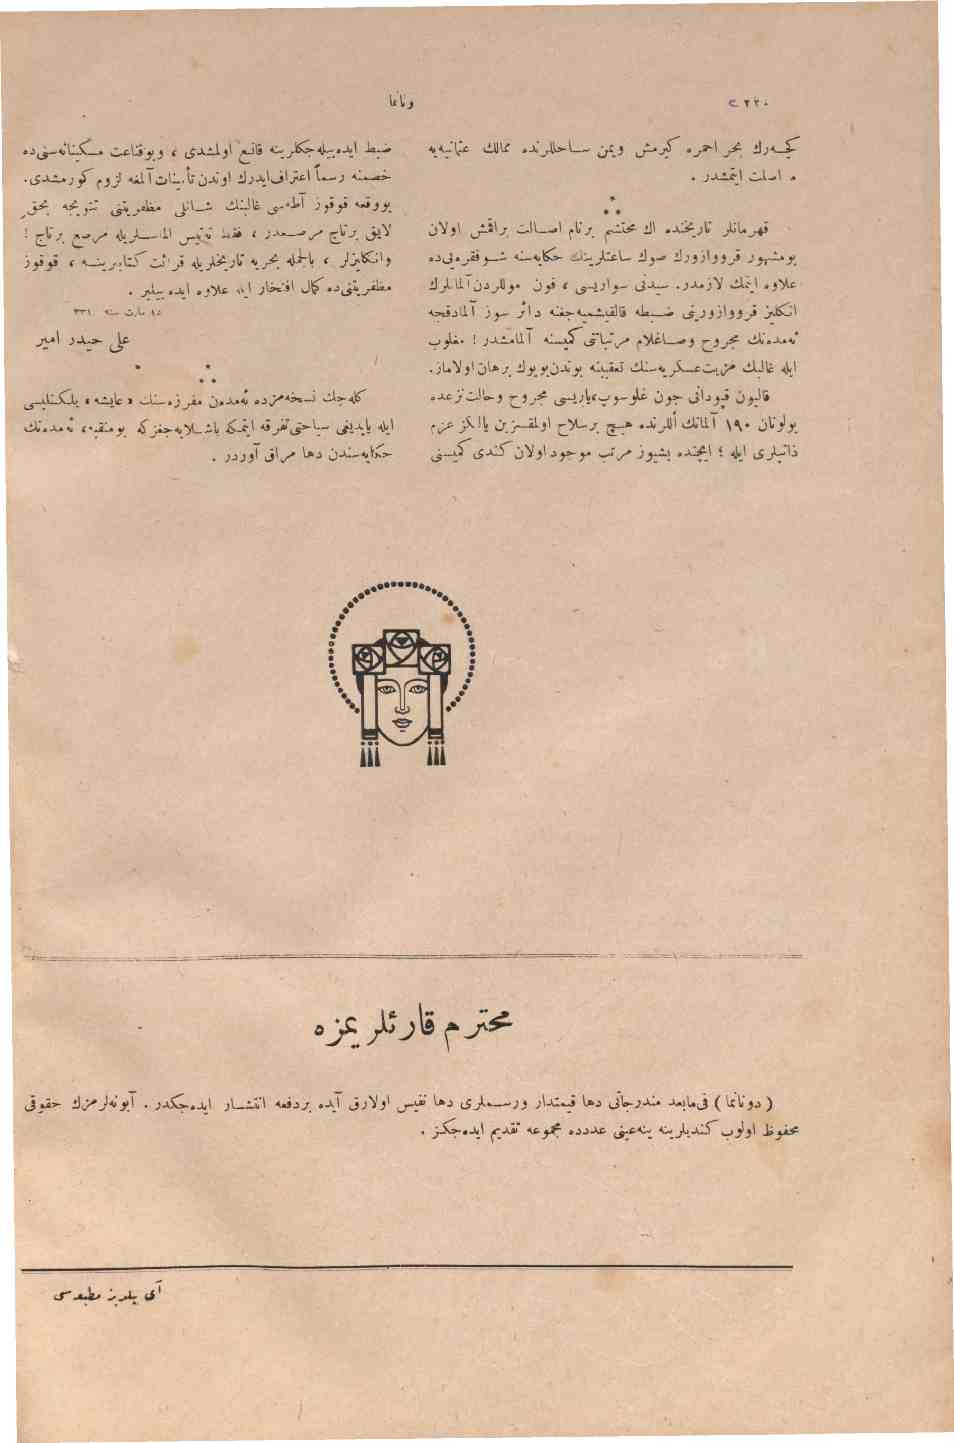 ٢٢٠
دونانما
كچـه‌رك بحر احمره كيرمش ويمن سـاحللرنده ممالك عثمانيه‌يه
مواصلت ايتمشدر .
*
* *
قهرمانلر تاريخنده اك محتشم برنام اصـالت براقمش اولان
بومشهور قرووازورك صوك ساعتلرينك حكايه‌سنه شـوفقره‌يى‌ده
علاوه ايتمك لازمدر. سيدنى سواريسى ، فون موللردن آلمانلرك
انكليز قرووازورينى ضـبطه قالقيشميه‌جغنه دائر سوز آلمادقجه
ئه‌مده‌نك مجروح وصـاغلام مرتباتى كميسنه آلمامشدر ! مغلوب
ايله غالبك مزيت‌عسكريه‌سنك تعقيبنه بوندن‌بويوك برهان‌اولاماز.
قالبون قپودانى جون غلوسوپ، ياريسى مجروح وحالت نزعده
بولونان ١٩٠ آلمانك أللرنده هيـچ برسلاح اولمقـزين يالكز عزم
ذاتيلرى ايله ؛ ايچنده بشيوز مرتب موجود اولان كندى كميسنى
ضبط ايده‌بيله‌جكلرينه قانـع اولمشدى ، وبوقناعت مسكينانه‌سنى‌ده
خصمنه رسماً اعتراف‌ايدرك اوندن تأمينات آلمغه لزوم كورمشدى.
بووقعه قوقوز آطه‌سى غالبنك شـانلى مظفريتنى تتويجه بحق
لايق برتاج مرصـعدر ، فقط ته‌تيس الماسـلريله مرصع برتاج !
وانكليزلر ، بالجمله بحريه تاريخلريله قرائت كتابلرينـه ، قوقوز
مظفريتنى‌ده كمال افتخار ايله علاوه ايده بيلير .
١٥ مارت سنه ٣٣١
على حيدر امير
*
* *
كله‌جك نسخه‌مزده ئه‌مده‌ن مفرزه‌سنك « عايشه » يلكـنليسى
ايله ياپديغى سياحتى تفرقه ايتمكه باشـلايه‌جغز كه بومنقبه، ئه‌مده‌نك
حكايه‌سندن دها مراق آوردر .
محترم قارئلريمزه
( دونانما ) فى‌مابعد مندرجاتى دها قيمتدار ورسـملرى دها نفيس اولارق آيده بردفعه انتشـار ايده‌جكدر . آبونه‌لرمزك حقوقى
محفوظ اولوب كنديلرينه ينه‌عينى عددده مجموعه تقديم ايده‌جكز .
آى يلديز مطبعه‌سى